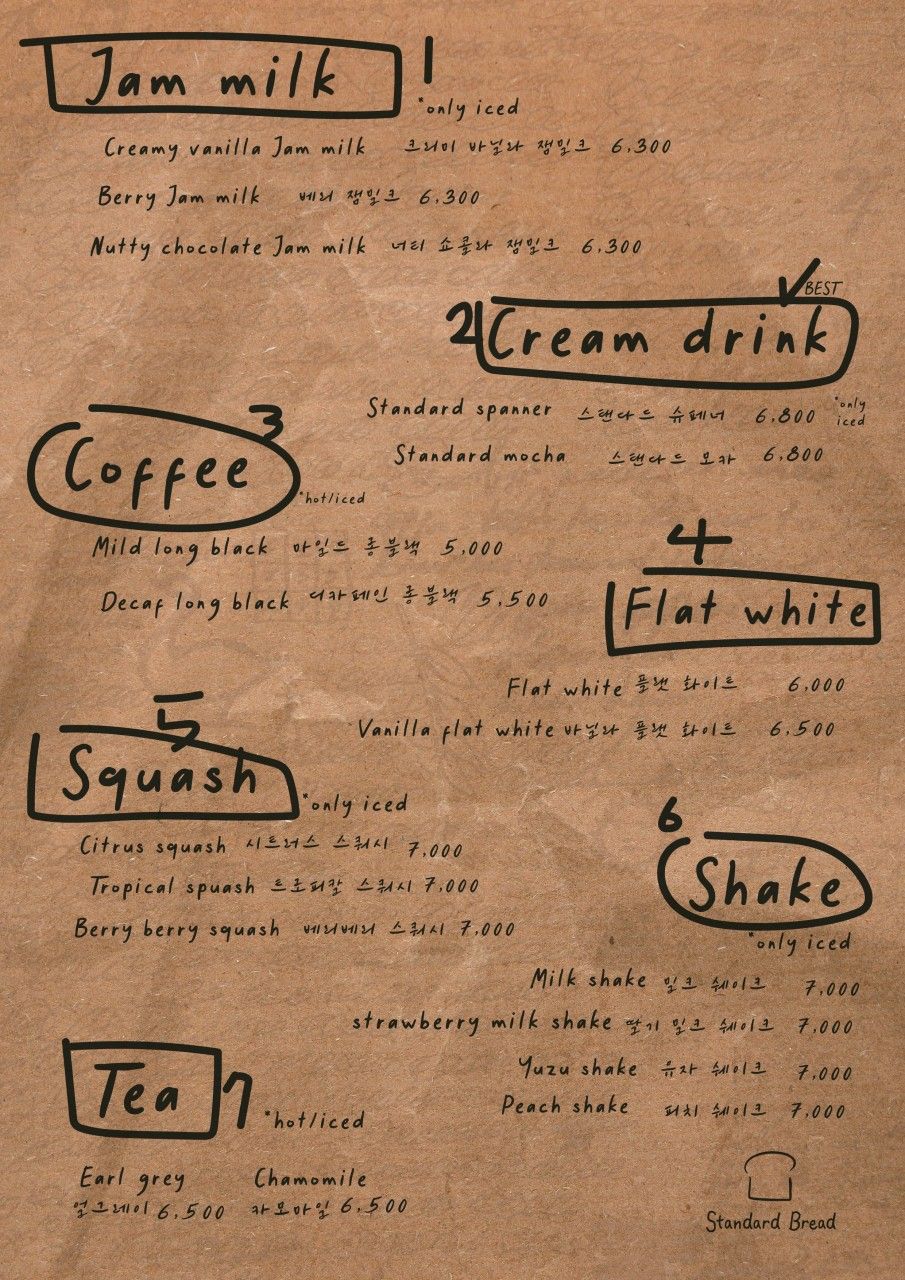 Jam milk 1
*only iced
Creamy vanilla Jam milk 크리미 바닐라 잼밀크 6,300
Berry Jam milk 베리 잼밀크 6,300
Nutty chocolate Jam milk 너티 쇼콜라 잼밀크 6,300
✓BEST
2 Cream drink
Standard spanner 스탠다드 슈페너 6,800 *only iced
Standard mocha 스탠다드 모카 6,800
3
Coffee
*hot/iced
Mild long black 마일드 롱블랙 5,000
Decaf long black 디카페인 롱블랙 5,500
4
Flat white
Flat white 플랫 화이트 6,000
Vanilla flat white 바닐라 플랫 화이트 6,500
5
Squash
*only iced
Citrus squash 시트러스 스쿼시 7,000
Tropical spuash 트로피칼 스쿼시 7,000
Berry berry squash 베리베리 스쿼시 7,000
6
Shake
*only iced
Milk shake 밀크 쉐이크 7,000
strawberry milk shake 딸기 밀크 쉐이크 7,000
Yuzu shake 유자 쉐이크 7,000
Peach shake 피치 쉐이크 7,000
Tea 7
*hot/iced
Earl grey Chamomile
얼그레이 6,500 카모마일 6,500
Standard Bread